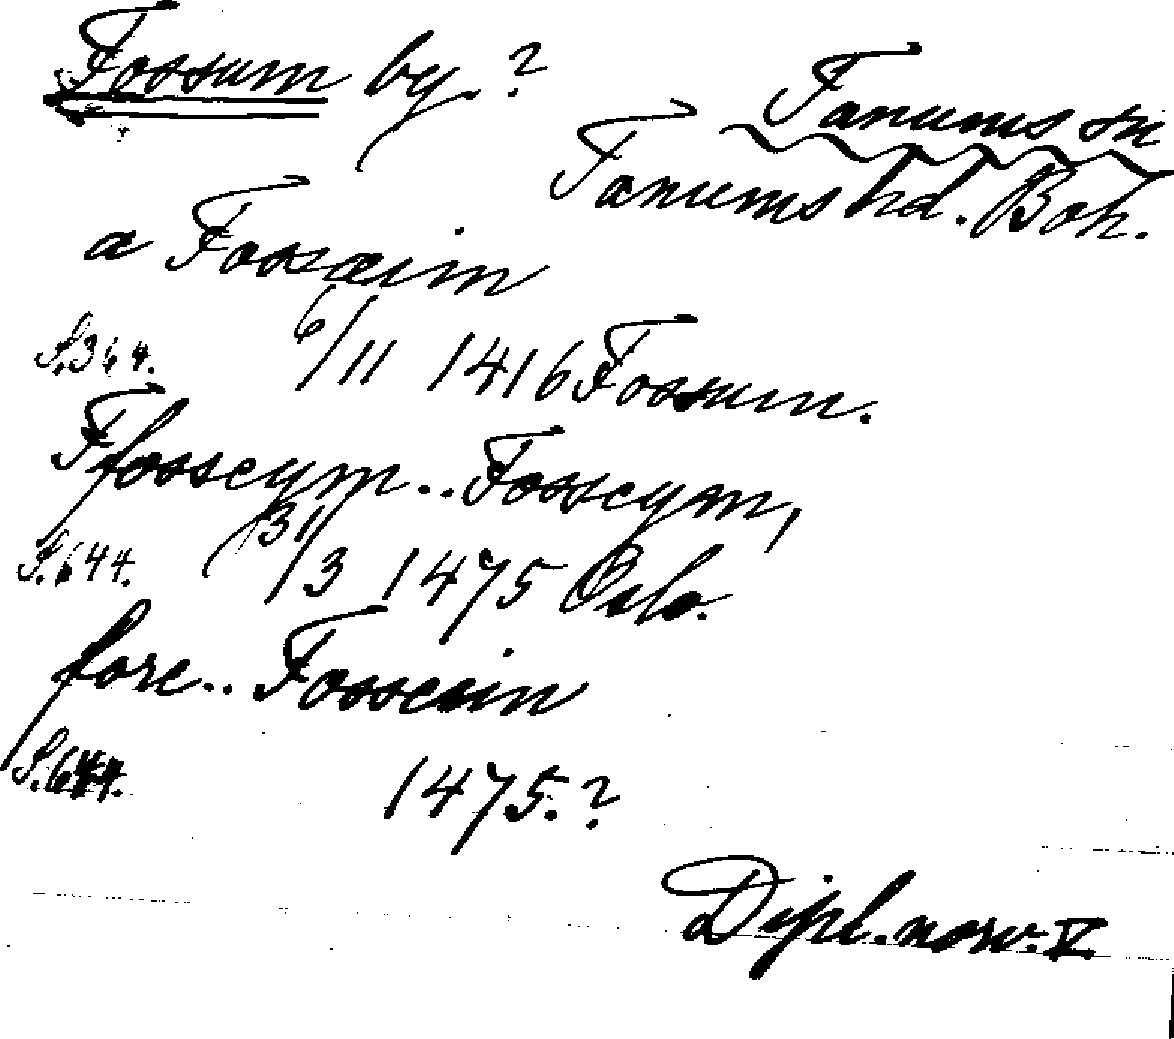 Fossum by. ?
Tanums sn
Tanums hd. Boh.
a Fossæim
S. 364. 6/11 1416 Fossum.
Ffosseym.. Fosseym,
S. 644. 31/3 1475 Oslo.
fore.. Fossein
S. 644. 1475. ?
Dipl. norv. V.